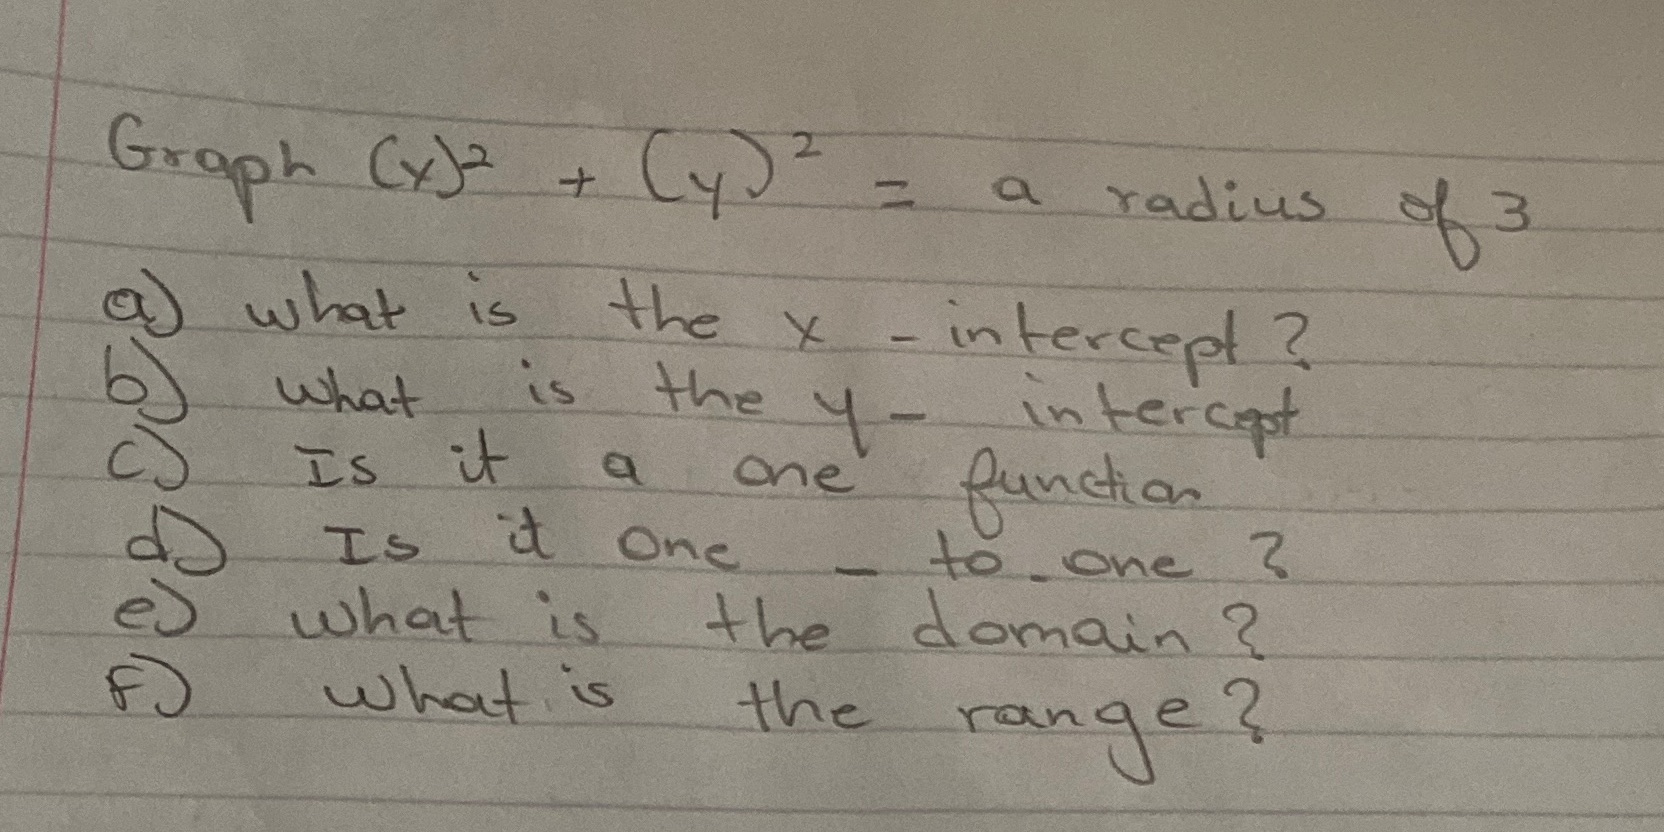 Graph (x)² + (y)² = a radius of 3
a) what is the x - intercept?
b) what is the y - intercept
c) Is it a one function
d) Is it one - to - one ?
e) what is the domain?
f) what is the range?